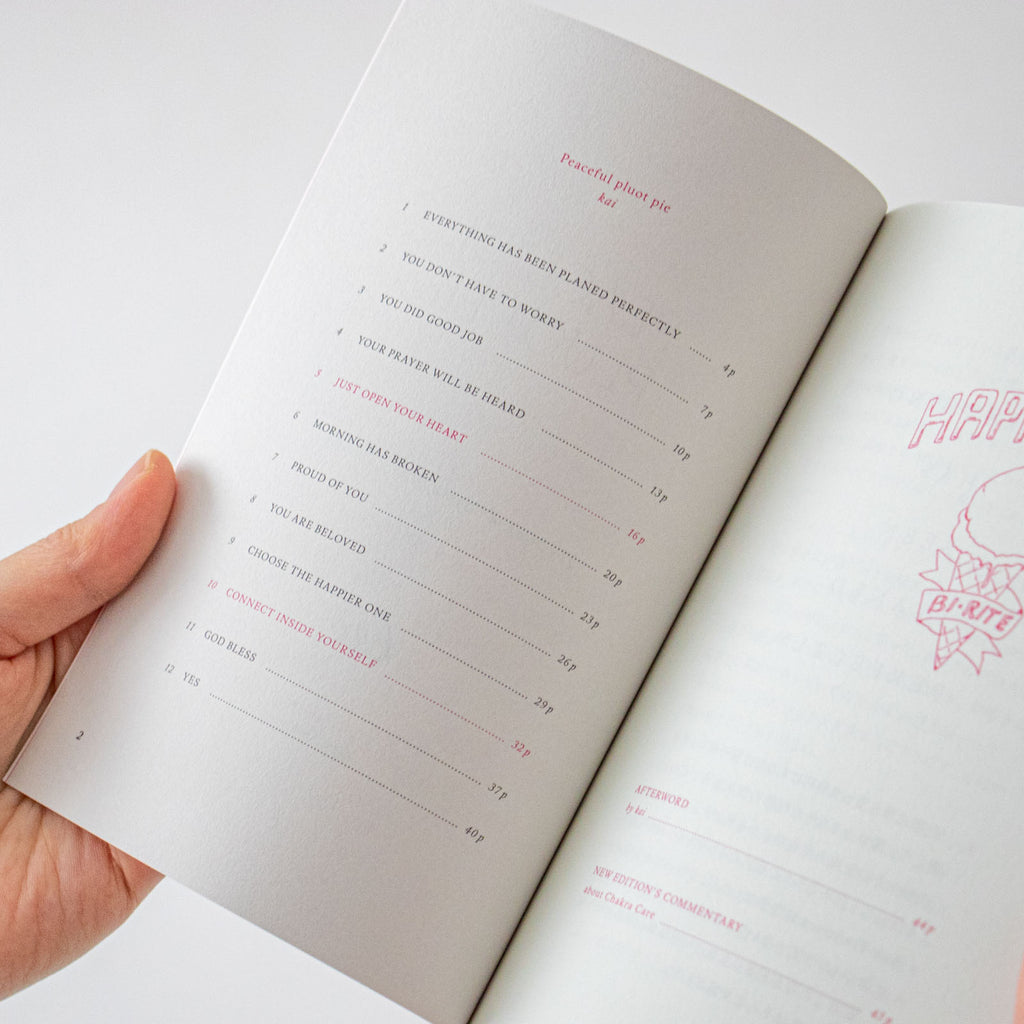 Peaceful pluot pie
kai
1 EVERYTHING HAS BEEN PLANED PERFECTLY ...... 4p
2 YOU DON'T HAVE TO WORRY ...... 7p
3 YOU DID GOOD JOB ...... 10p
4 YOUR PRAYER WILL BE HEARD ...... 13p
5 JUST OPEN YOUR HEART ...... 16p
6 MORNING HAS BROKEN ...... 20p
7 PROUD OF YOU ...... 23p
8 YOU ARE BELOVED ...... 26p
9 CHOOSE THE HAPPIER ONE ...... 29p
10 CONNECT INSIDE YOURSELF ...... 32p
11 GOD BLESS ...... 37p
12 YES ...... 40p
2
HAPP
BI-RITE
AFTERWORD
by kai ...... 44p
NEW EDITION'S COMMENTARY
about Chakra Care